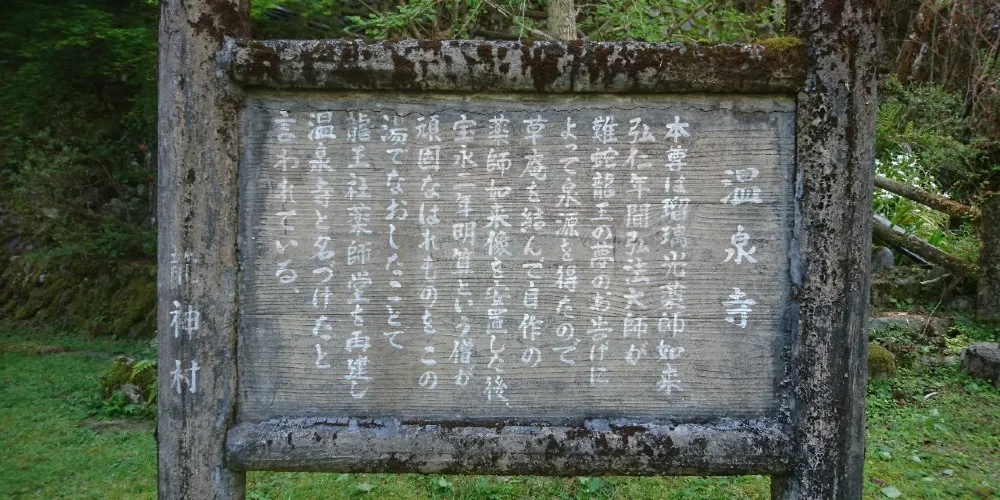 温泉寺
本尊は瑠璃光薬師如来
弘仁年間弘法大師が
難蛇龍王の夢のお告げに
よって泉源を得たので
草庵を結んで自作の
薬師如来像を安置した後、
宝永二年明算という僧が
頑固なはれものをこの
湯でなおしたことで
龍王社薬師堂を再建し
温泉寺と名づけたと
言われている、
龍神村